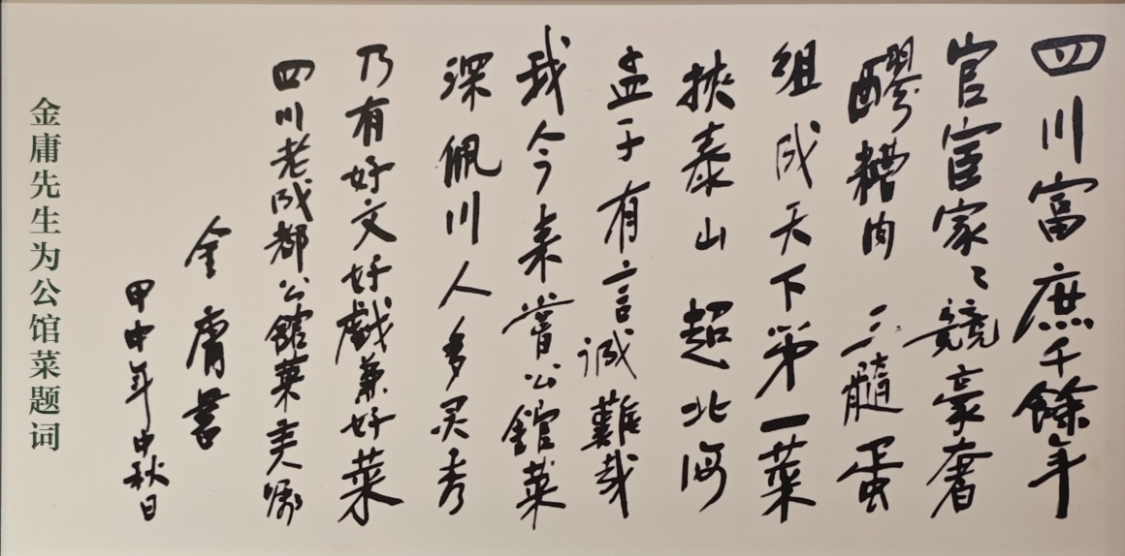 四川富庶千餘年
官宦家々競豪奢
醪糟肉 三髓蛋
组成天下第一菜
挾泰山 超北海
孟子有言诚難哉
我今来嘗公館菜
深佩川人多灵秀
乃有好文好戲兼好菜
四川老成都公館菜主人嘱
金庸書
甲申年中秋日
金庸先生为公馆菜题词